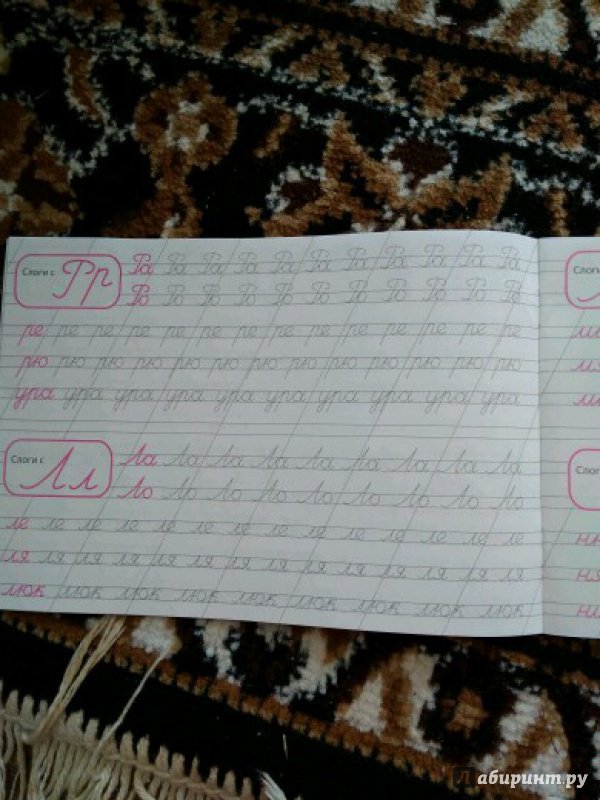 Слоги с Рр
Ра Ра Ра Ра Ра Ра Ра Ра Ра Ра Ра
Ро Ро Ро Ро Ро Ро Ро Ро Ро Ро Ро
ре ре ре ре ре ре ре ре ре ре ре ре ре ре
рю рю рю рю рю рю рю рю рю рю рю рю рю
ура ура ура ура ура ура ура ура ура ура
Слоги с Лл
Ла Ла Ла Ла Ла Ла Ла Ла Ла
Ло Ло Ло Ло Ло Ло Ло Ло Ло
ле ле ле ле ле ле ле ле ле ле ле ле ле ле
ля ля ля ля ля ля ля ля ля ля ля ля ля ля
люк люк люк люк люк люк люк люк люк
Лабиринт.ру